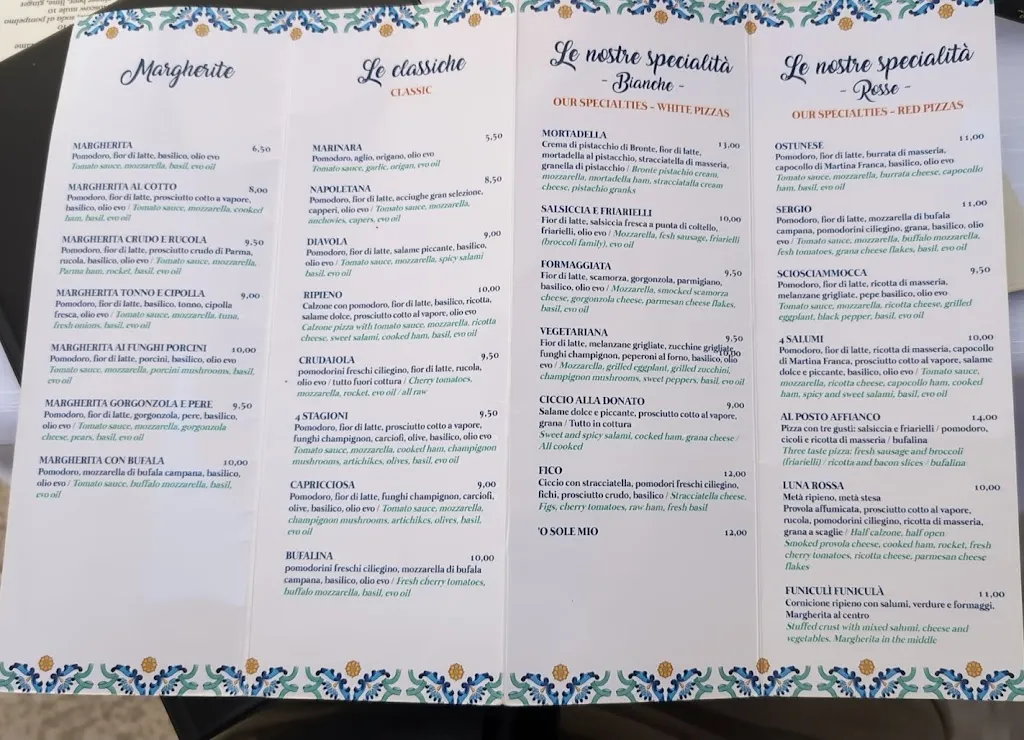 Margherite
MARGHERITA 6,50
Pomodoro, fior di latte, basilico, olio evo
Tomato sauce, mozzarella, basil, evo oil
MARGHERITA AL COTTO 8,00
Pomodoro, fior di latte, prosciutto cotto a vapore,
basilico, olio evo / Tomato sauce, mozzarella, cooked
ham, basil, evo oil
MARGHERITA CRUDO E RUCOLA 9,50
Pomodoro, fior di latte, prosciutto crudo di Parma,
rucola, basilico, olio evo / Tomato sauce, mozzarella,
Parma ham, rocket, basil, evo oil
MARGHERITA TONNO E CIPOLLA 9,00
Pomodoro, fior di latte, basilico, tonno, cipolla
fresca, olio evo / Tomato sauce, mozzarella, tuna,
fresh onions, basil, evo oil
MARGHERITA AI FUNGHI PORCINI 10,00
Pomodoro, fior di latte, porcini, basilico, olio evo
Tomato sauce, mozzarella, porcini mushrooms, basil,
evo oil
MARGHERITA GORGONZOLA E PERE 9,50
Pomodoro, fior di latte, gorgonzola, pere, basilico,
olio evo / Tomato sauce, mozzarella, gorgonzola
cheese, pears, basil, evo oil
MARGHERITA CON BUFALA 10,00
Pomodoro, mozzarella di bufala campana, basilico,
olio evo / Tomato sauce, buffalo mozzarella, basil,
evo oil
Le classiche
CLASSIC
MARINARA 5,50
Pomodoro, aglio, origano, olio evo
Tomato sauce, garlic, origan, evo oil
NAPOLETANA 8,50
Pomodoro, fior di latte, acciughe gran selezione,
capperi, olio evo / Tomato sauce, mozzarella,
anchovies, capers, evo oil
DIAVOLA 9,00
Pomodoro, fior di latte, salame piccante, basilico,
olio evo / Tomato sauce, mozzarella, spicy salami
basil, evo oil
RIPIENO 10,00
Calzone con pomodoro, fior di latte, basilico, ricotta,
salame dolce, prosciutto cotto al vapore, olio evo
Calzone pizza with tomato sauce, mozzarella, ricotta
cheese, sweet salami, cooked ham, basil, evo oil
CRUDAIOLA 9,50
pomodorini freschi ciliegino, fior di latte, rucola,
olio evo / tutto fuori cottura / Cherry tomatoes,
mozzarella, rocket, evo oil / all raw
4 STAGIONI 9,50
Pomodoro, fior di latte, prosciutto cotto a vapore,
funghi champignon, carciofi, olive, basilico, olio evo
Tomato sauce, mozzarella, cooked ham, champignon
mushrooms, artichikes, olives, basil, evo oil
CAPRICCIOSA 9,00
Pomodoro, fior di latte, funghi champignon, carciofi,
olive, basilico, olio evo / Tomato sauce, mozzarella,
champignon mushrooms, artichikes, olives, basil,
evo oil
BUFALINA 10,00
pomodorini freschi ciliegino, mozzarella di bufala
campana, basilico, olio evo / Fresh cherry tomatoes,
buffalo mozzarella, basil, evo oil
Le nostre specialità
- Bianche -
OUR SPECIALTIES - WHITE PIZZAS
MORTADELLA 13,00
Crema di pistacchio di Bronte, fior di latte,
mortadella al pistacchio, stracciatella di masseria,
granella di pistacchio / Bronte pistachio cream,
mozzarella, mortadella ham, stracciatalla cream
cheese, pistachio granks
SALSICCIA E FRIARIELLI 10,00
Fior di latte, salsiccia fresca a punta di coltello,
friarielli, olio evo / Mozzarella, fesh sausage, friarielli
(broccoli family), evo oil
FORMAGGIATA 9,50
Fior di latte, scamorza, gorgonzola, parmigiano,
basilico, olio evo / Mozzarella, smocked scamorza
cheese, gorgonzola cheese, parmesan cheese flakes,
basil, evo oil
VEGETARIANA 9,50
Fior di latte, melanzane grigliate, zucchine grigliate,
funghi champignon, peperoni al forno, basilico, olio 10,00
evo / Mozzarella, grilled eggplant, grilled zucchini,
champignon mushrooms, sweet peppers, basil, evo oil
CICCIO ALLA DONATO 9,00
Salame dolce e piccante, prosciutto cotto al vapore,
grana / Tutto in cottura
Sweet and spicy salami, cocked ham, grana cheese /
All cooked
FICO 12,00
Ciccio con stracciatella, pomodori freschi ciliegino,
fichi, prosciutto crudo, basilico / Stracciatella cheese,
Figs, cherry tomatoes, raw ham, fresh basil
'O SOLE MIO 12,00
Le nostre specialità
- Rosse -
OUR SPECIALTIES - RED PIZZAS
OSTUNESE 11,00
Pomodoro, fior di latte, burrata di masseria,
capocollo di Martina Franca, basilico, olio evo
Tomato sauce, mozzarella, burrata cheese, capocollo
ham, basil, evo oil
SERGIO 11,00
Pomodoro, fior di latte, mozzarella di bufala
campana, pomodorini ciliegino, grana, basilico, olio
evo / Tomato sauce, mozzarella, buffalo mozzarella,
fesh tomatoes, grana cheese flakes, basil, evo oil
SCIOSCIAMMOCCA 9,50
Pomodoro, fior di latte, ricotta di masseria,
melanzane grigliate, pepe basilico, olio evo
Tomato sauce, mozzarella, ricotta cheese, grilled
eggplant, black pepper, basil, evo oil
4 SALUMI 10,00
Pomodoro, fior di latte, ricotta di masseria, capocollo
di Martina Franca, prosciutto cotto a vapore, salame
dolce e piccante, basilico, olio evo / Tomato sauce,
mozzarella, ricotta cheese, capocollo ham, cooked
ham, spicy and sweet salami, basil, evo oil
AL POSTO AFFIANCO 14,00
Pizza con tre gusti: salsiccia e friarielli / pomodoro,
cicoli e ricotta di masseria / bufalina
Three taste pizza: fresh sausage and broccoli
(friarielli) / ricotta and bacon slices / bufalina
LUNA ROSSA 10,00
Metà ripieno, metà stesa
Provola affumicata, prosciutto cotto al vapore,
rucola, pomodorini ciliegino, ricotta di masseria,
grana a scaglie / Half calzone, half open
Smoked provola cheese, cooked ham, rocket, fresh
cherry tomatoes, ricotta cheese, parmesan cheese
flakes
FUNICULÌ FUNICULÀ 11,00
Cornicione ripieno con salumi, verdure e formaggi,
Margherita al centro
Stuffed crust with mixed salumi, cheese and
vegetables, Margherita in the middle